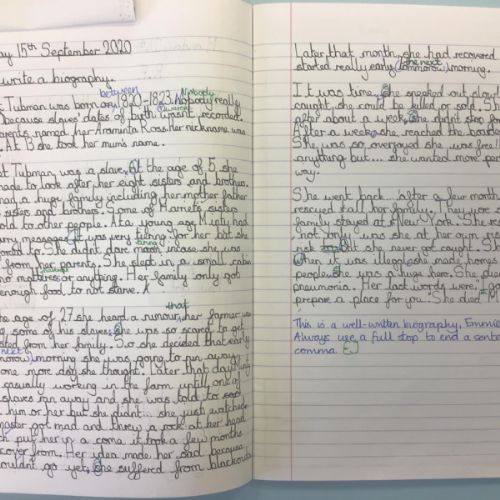 ay 15th September 2020
write a biography.
between Nobody
t Tubman was born on 1820-1823. Nobody really
because slaves' dates of birth wasn't recorded.
arents named her Araminta Ross her nickname was
. At 13 she took her mum's name.
et Tubman was a slave. At the age of 5 she
made to look after her eight sisters and brothers.
had a huge family including her mother father
sisters and brothers. Some of Harriet's sisters
sold to other people. At a young age Minti had
arry messages, it was very tiring for her but she
orced to. She didnt moan incase she was
from her parents. She slept in a small cabin
no matress or anything. Her family only got
enough food to not starve. A
that
he age of 27 she heard a rumour, her farmer was
g some of his slaves, she was so scared to get
ated from her family. So she decided that early
next
morrow morning she was going to run away
one more day she thought. Later that day
casually working in the farm until one of
slaves ran away and she was told to
him or her but she didn't... she just watched
master got mad and threw a rock at her head
ch put her in a coma it took a few months
cover from. Her idea made her sad because
ouldn't go yet, she suffered from blackouts
Later that month, she had recovered
the next
started really early tommorow morning.
It was time, she sneaked out slowly
caught, she could be killed or sold. Sh
after about a week, she didn't stop for
After a week, she reached the bord
She was so overjoyed she was free!!
anything but... she wanted more peo
way.
She went back after a few month
rescued all her family. They
family stayed at New York. She res
not only was she at her own
risk but she never got caught. S
When it was illegal she made homes
people, she was a huge hero. She die
pneumonia. Her last words were, I go
prepare a place for you. She died
This is a well-written biography, Emmie
Always use a full stop to end a senten
comma